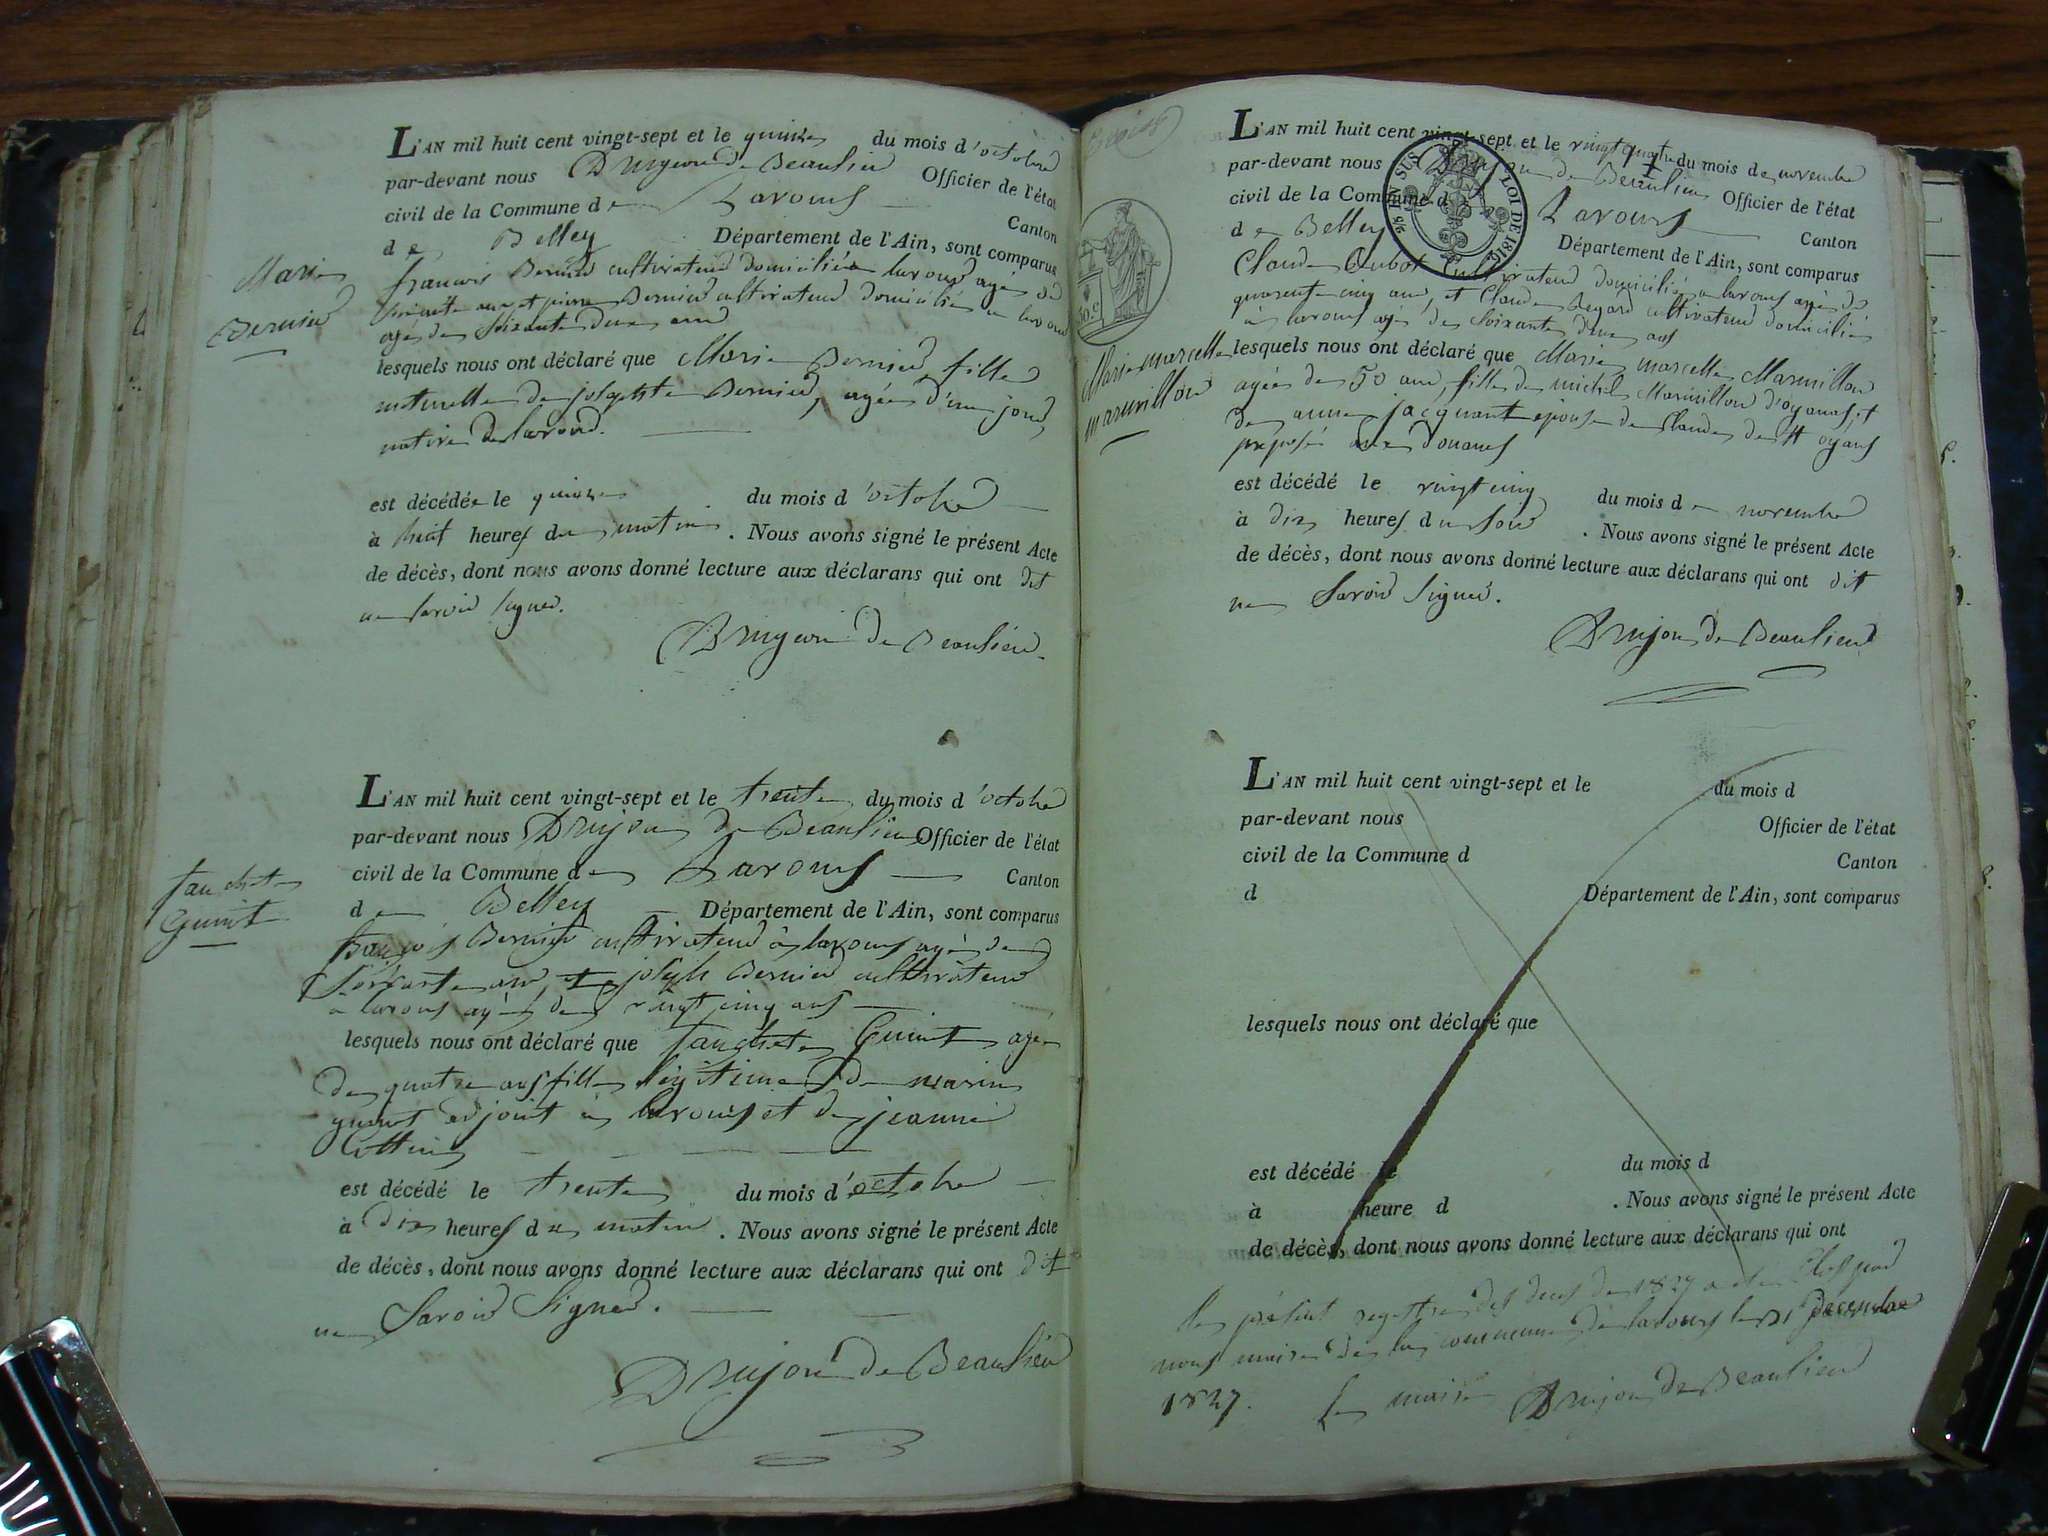 L'AN mil huit cent vingt-sept et le quinze du mois d'octobre
par-devant nous Drujon de Beaulieu Officier de l'état
civil de la Commune de Lavours Canton
de Belley Département de l'Ain, sont comparus
Marie
Bernier
francois Bernier cultivateur domicilié a lavours agé de
soixante ans et pierre Bernier cultivateur domicilié a lavours
agé de soixante deux ans
lesquels nous ont déclaré que Marie Bernier fille
naturelle de josephte Bernier, agée d'un jour,
native de lavours.
est décédée le quinze du mois d'octobre
à huit heures du matin . Nous avons signé le présent Acte
de décès, dont nous avons donné lecture aux déclarans qui ont dit
ne savoir signer.
Drujon de Beaulieu
L'AN mil huit cent vingt-sept et le trente du mois d'octobre
par-devant nous Drujon de Beaulieu Officier de l'état
civil de la Commune de Lavours Canton
de Belley Département de l'Ain, sont comparus
fanchete
Guint
francois Bernier cultivateur à lavours agé de
soixante ans et joseph Bernier cultivateur
a lavours agé de vingt cinq ans
lesquels nous ont déclaré que fanchete Guint agée
de quatre ans fille légitime de marin
guint adjoint à lavours et de jeanne
Cottin
est décédé le trente du mois d'octobre
à dix heures du matin . Nous avons signé le présent Acte
de décès, dont nous avons donné lecture aux déclarans qui ont dit
ne Savoir Signer.
Drujon de Beaulieu
L'AN mil huit cent vingt-sept et le vingt quatre du mois de novembre
par-devant nous Drujon de Beaulieu Officier de l'état
civil de la Commune d Lavours Canton
de Belley Département de l'Ain, sont comparus
EN SUS LOI DE 1816
Marie marcelle
marmillon
Claude Cubot cultivateur domicilié a lavours agé de
quarente cinq ans, et Claude Regard cultivateur domicilié
à lavours agé de soixante deux ans
lesquels nous ont déclaré que Marie marcelle Marmillon
agée de 50 ans, fille de michel Marmillon d'oyonas, et
de anne jacquant epouse de Claude de st oyans
preposé aux douanes
est décédé le vingt cinq du mois de novembre
à dix heures du soir . Nous avons signé le présent Acte
de décès, dont nous avons donné lecture aux déclarans qui ont dit
ne Savoir Signer.
Drujon de Beaulieu
L'AN mil huit cent vingt-sept et le du mois d
par-devant nous Officier de l'état
civil de la Commune d Canton
d Département de l'Ain, sont comparus
lesquels nous ont déclaré que
est décédé le du mois d
à heure d . Nous avons signé le présent Acte
de décès, dont nous avons donné lecture aux déclarans qui ont
Le présent registre des deces de 1827 a été Clos par
nous maire de la commune de lavours le 31 Decembre
1827. Le maire Drujon de Beaulieu